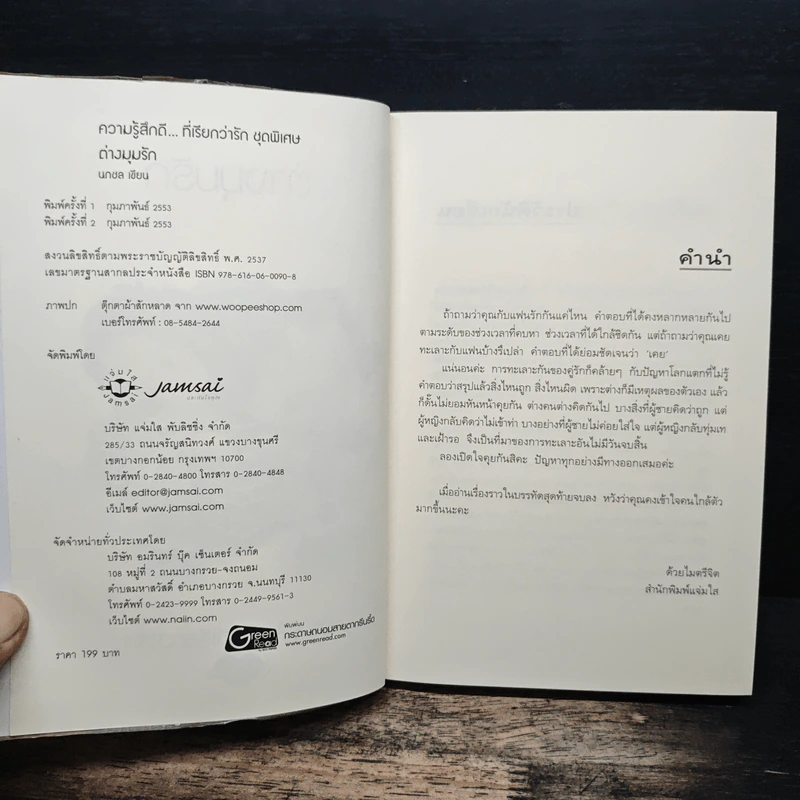 ความรู้สึกดี... ที่เรียกว่ารัก ชุดพิเศษ
ต่างมุมรัก
นภชล เขียน
พิมพ์ครั้งที่ 1 กุมภาพันธ์ 2553
พิมพ์ครั้งที่ 2 กุมภาพันธ์ 2553
สงวนลิขสิทธิ์ตามพระราชบัญญัติลิขสิทธิ์ พ.ศ. 2537
เลขมาตรฐานสากลประจำหนังสือ ISBN 978-616-06-0090-8
ภาพปก ตุ๊กตาผ้าสักหลาด จาก www.woopeeshop.com
เบอร์โทรศัพท์ : 08-5484-2644
จัดพิมพ์โดย
แจ่มใส
Jamsai
jamsai
บริษัท แจ่มใส พับลิชชิ่ง จำกัด
285/33 ถนนจรัญสนิทวงศ์ แขวงบางขุนศรี
เขตบางกอกน้อย กรุงเทพฯ 10700
โทรศัพท์ 0-2840-4800 โทรสาร 0-2840-4848
อีเมล์ editor@jamsai.com
เว็บไซต์ www.jamsai.com
จัดจำหน่ายทั่วประเทศโดย
บริษัท อมรินทร์ บุ๊ค เซ็นเตอร์ จำกัด
108 หมู่ที่ 2 ถนนบางกรวย-จงถนอม
ตำบลมหาสวัสดิ์ อำเภอบางกรวย จ.นนทบุรี 11130
โทรศัพท์ 0-2423-9999 โทรสาร 0-2449-9561-3
เว็บไซต์ www.naiin.com
ราคา 199 บาท
Green Read
พิมพ์บน
กระดาษถนอมสายตากรีนรี้ด
www.greenread.com
คำนำ
ถ้าถามว่าคุณกับแฟนรักกันแค่ไหน คำตอบที่ได้คงหลากหลายกันไป
ตามระดับของช่วงเวลาที่คบหา ช่วงเวลาที่ได้ใกล้ชิดกัน แต่ถ้าถามว่าคุณเคย
ทะเลาะกับแฟนบ้างรึเปล่า คำตอบที่ได้ย่อมชัดเจนว่า 'เคย'
แน่นอนค่ะ การทะเลาะกันของคู่รักก็คล้ายๆ กับปัญหาโลกแตกที่ไม่รู้
คำตอบว่าสรุปแล้วสิ่งไหนถูก สิ่งไหนผิด เพราะต่างก็มีเหตุผลของตัวเอง แล้ว
ก็ดื้นไม่ยอมหันหน้าคุยกัน ต่างคนต่างคิดกันไป บางสิ่งที่ผู้ชายคิดว่าถูก แต่
ผู้หญิงกลับคิดว่าไม่เข้าท่า บางอย่างที่ผู้ชายไม่ค่อยใส่ใจ แต่ผู้หญิงกลับทุ่มเท
และเฝ้ารอ จึงเป็นที่มาของการทะเลาะอันไม่มีวันจบสิ้น
ลองเปิดใจคุยกันสิคะ ปัญหาทุกอย่างมีทางออกเสมอค่ะ
เมื่ออ่านเรื่องราวในบรรทัดสุดท้ายจบลง หวังว่าคุณคงเข้าใจคนใกล้ตัว
มากขึ้นนะคะ
ด้วยไมตรีจิต
สำนักพิมพ์แจ่มใส